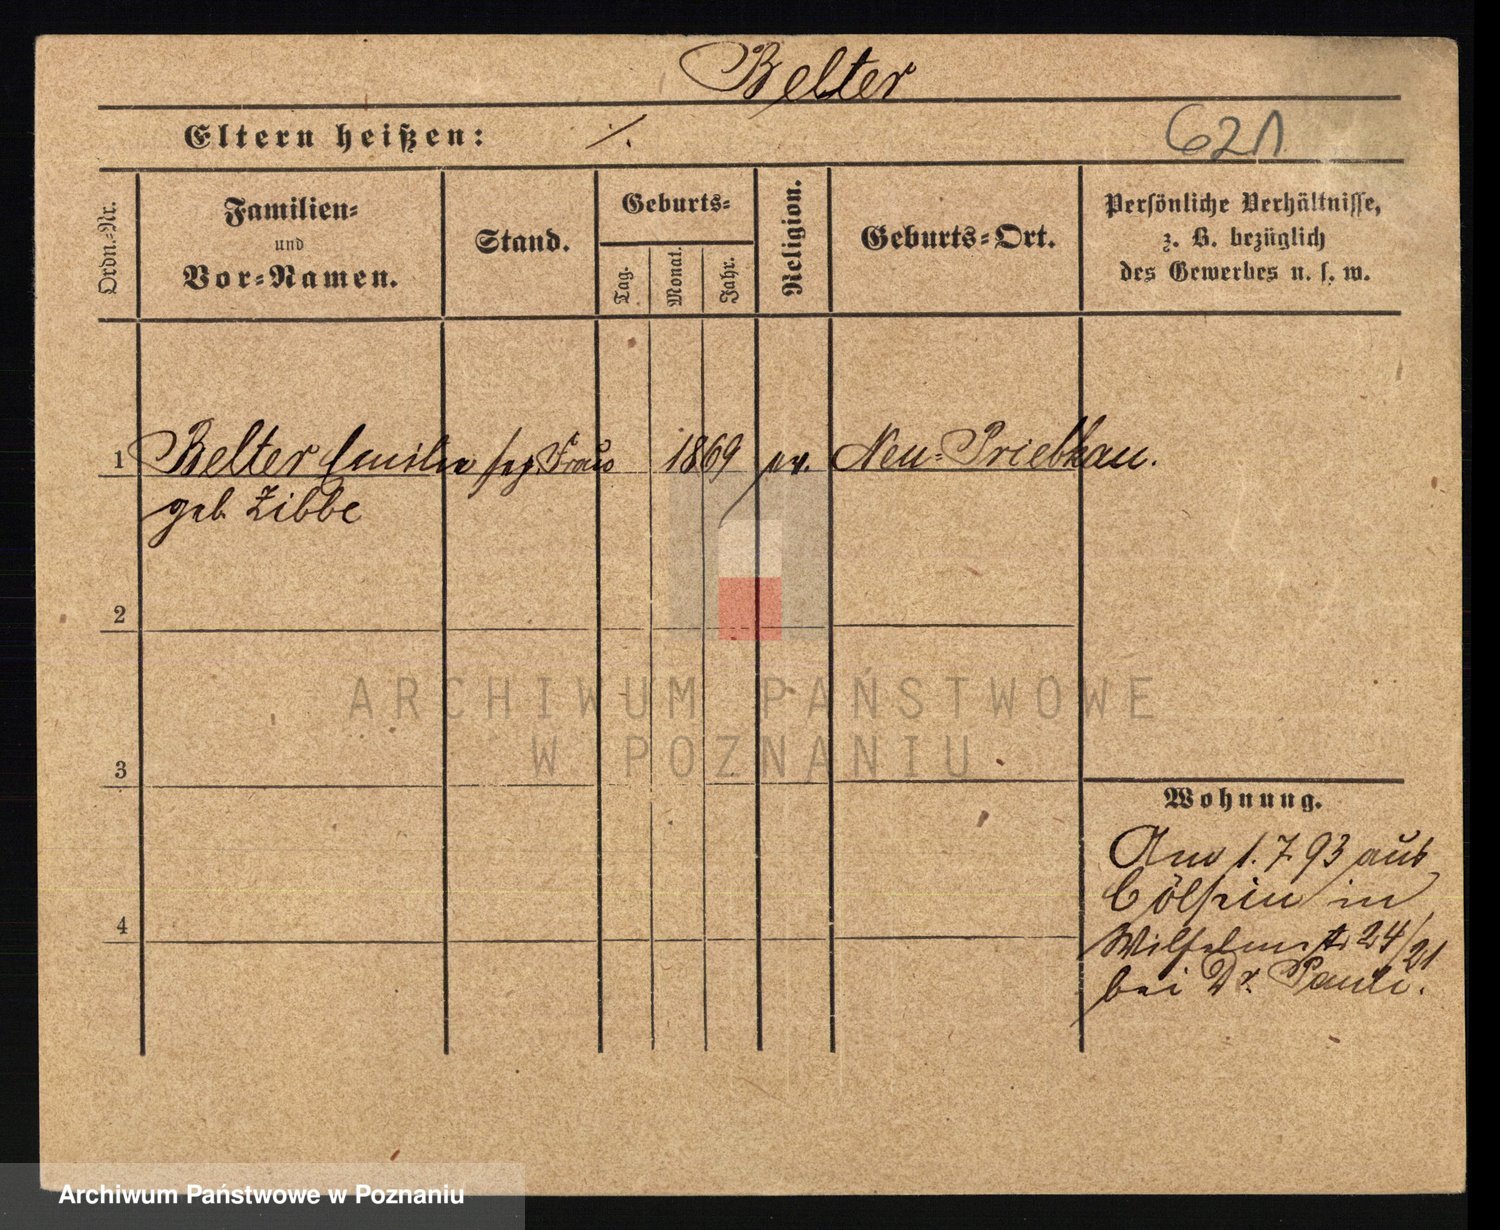 Belter
Eltern heißen: ./.
621
Ordn.-Nr.
Familien-
und
Vor-Namen.
Stand.
Geburts-
Tag.
Monat.
Jahr.
Religion.
Geburts-Ort.
Persönliche Verhältnisse,
z. B. bezüglich
des Gewerbes u. s. w.
1 Belter Emilie Frau 1869 ev. Neu-Priebkau.
geb. Zibbe
2
3
4
Wohnung.
Am 1. 7. 93 aus
Cölpin in
Wilhelmstr 24/21
bei Dr. Pauli.
ARCHIWUM PAŃSTWOWE
W POZNANIU
Archiwum Państwowe w Poznaniu